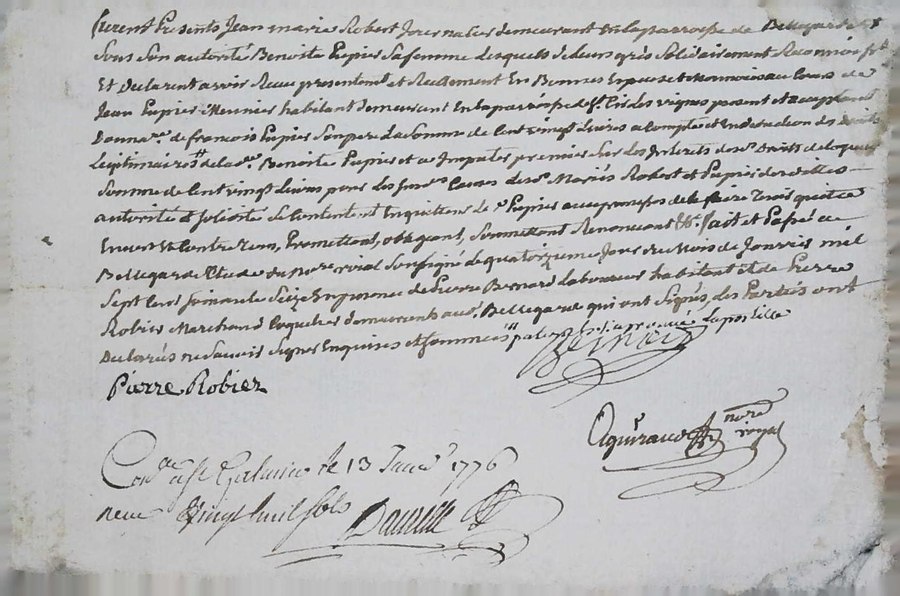 furent Presents Jean marie Robert Journalier demeurant En la parroisse de Bellegarde et
sous son autorité Benoite Papier sa femme Lesquels de leur grés solidairement Reconnoissent
Et declarent avoir Receu presentement et Reellement En Bonnes Especes et monnoies au Cours de
Jean Papier meunier habitant demeurant En la parroisse de St Cir les vignes present et acceptant
Donnare de francois Papier son pere La somme de Cent vingt livres a Compte et En deduction des Droits
Legitimaires de lad. Benoite Papier et a Imputer premier sur les Interets de sd. Droits de laquelle
somme de Cent vingt livres pour les susd. Causes lesd. Mariés Robert et Papier de willes
autorité et solidité se Contentent Enquittent led. Papier avec promesse de le faire tenir quitte
Envers et Contre tous, Promettant, obligeant, soumettant Renonceant &c. fait et Passé a
Bellegarde Etude du Nore roial soussigné le quatorzieme Jour du Mois de Janvier mil
Sept Cent soixante seize En presence de Pierre Bernard Laboureur habitant et de Pierre
Robier Marchand demeurants aud. Bellegarde qui ont signés, les Parties ont
Declarés ne savoir signer Enquises et sommées approuvée la postille
Pierre Robier
nore
royal
Conle a St Galmier le 13 Janvr 1776
Receu Vingt huit sols